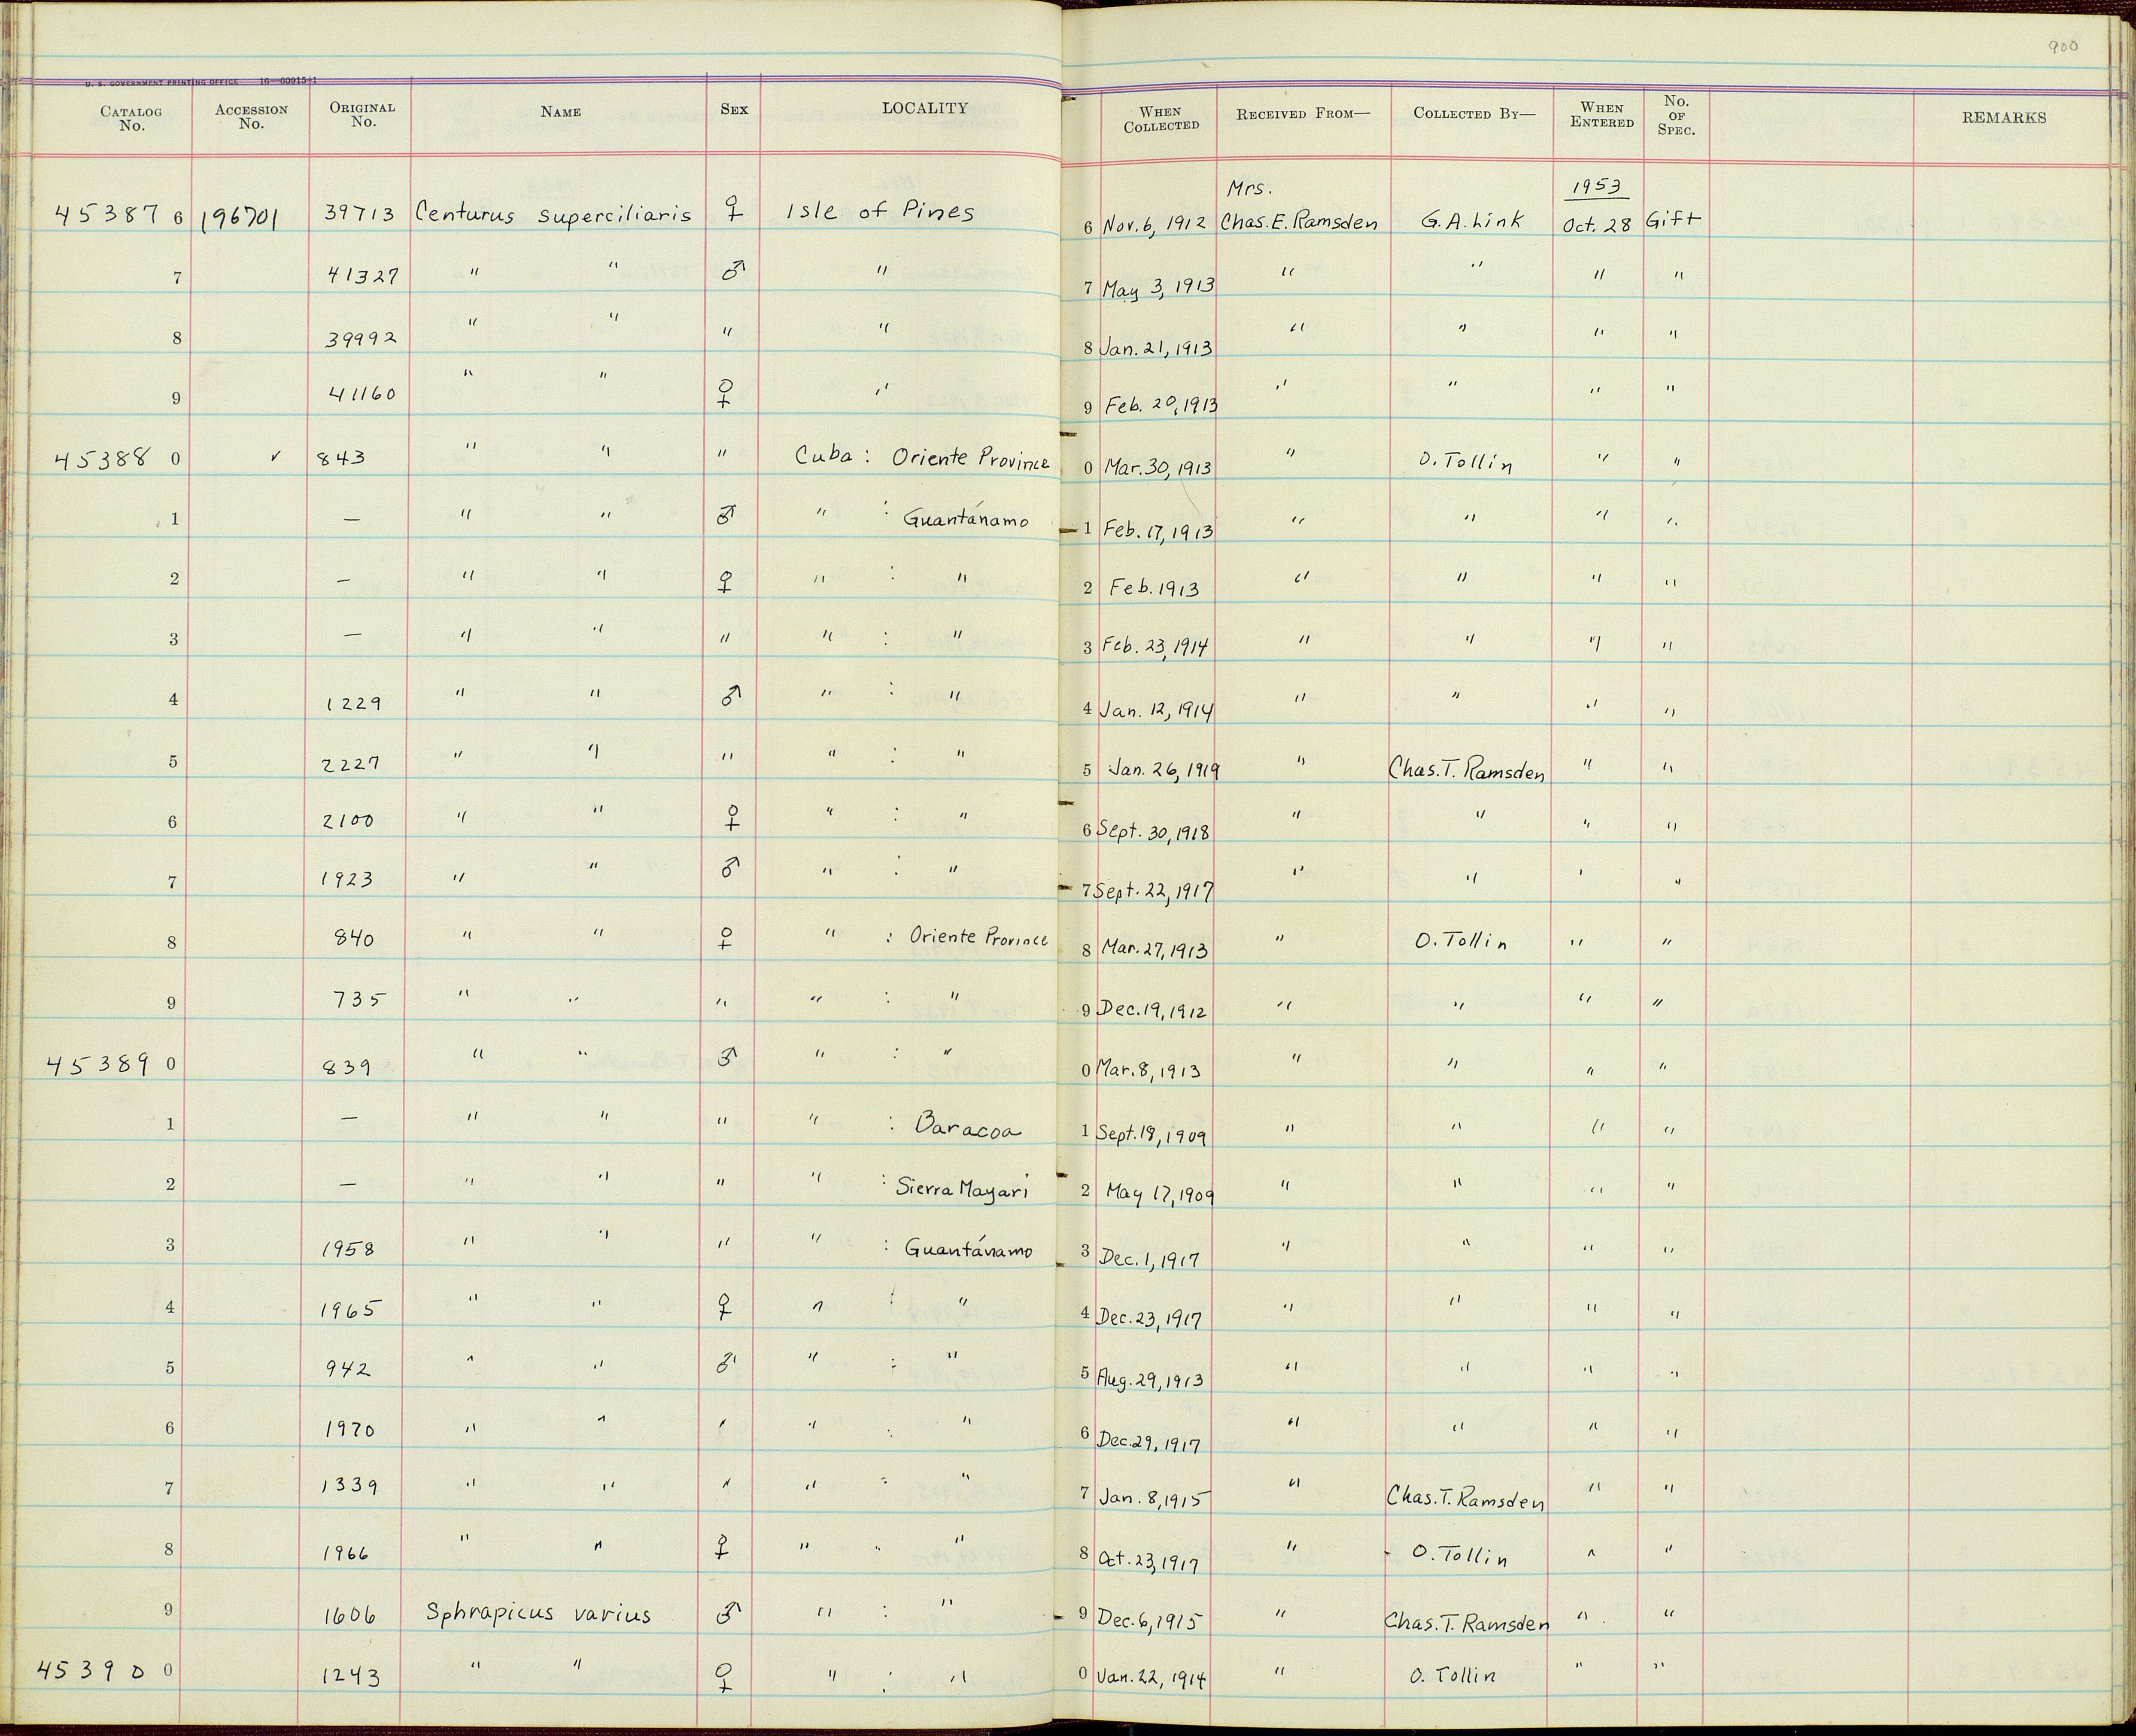 900
U. S. GOVERNMENT PRINTING OFFICE 16—60915-1
CATALOG No. ACCESSION No. ORIGINAL No. NAME SEX LOCALITY WHEN COLLECTED RECEIVED FROM— COLLECTED BY— WHEN ENTERED No. OF SPEC. REMARKS
Mrs. 1953
45387 6 196701 39713 Centurus superciliaris ♀ Isle of Pines 6 Nov. 6, 1912 Chas. E. Ramsden G. A. Link Oct. 28 Gift
7 41327 " " ♂ " 7 May 3, 1913 " " " "
8 39992 " " " " 8 Jan. 21, 1913 " " " "
9 41160 " " ♀ " 9 Feb. 20, 1913 " " " "
45388 0 ✓ 843 " " " Cuba : Oriente Province 0 Mar. 30, 1913 " O. Tollin " "
1 — " " ♂ " : Guantánamo 1 Feb. 17, 1913 " " " "
2 — " " ♀ " : " 2 Feb. 1913 " " " "
3 — " " " " : " 3 Feb. 23, 1914 " " " "
4 1229 " " ♂ " : " 4 Jan. 12, 1914 " " " "
5 2227 " " " " : " 5 Jan. 26, 1919 " Chas. T. Ramsden " "
6 2100 " " ♀ " : " 6 Sept. 30, 1918 " " " "
7 1923 " " ♂ " : " 7 Sept. 22, 1917 " " " "
8 840 " " ♀ " : Oriente Province 8 Mar. 27, 1913 " O. Tollin " "
9 735 " " " " : " 9 Dec. 19, 1912 " " " "
45389 0 839 " " ♂ " : " 0 Mar. 8, 1913 " " " "
1 — " " " " : Baracoa 1 Sept. 18, 1909 " " " "
2 — " " " " : Sierra Mayari 2 May 17, 1909 " " " "
3 1958 " " " " : Guantánamo 3 Dec. 1, 1917 " " " "
4 1965 " " ♀ " : " 4 Dec. 23, 1917 " " " "
5 942 " " ♂ " : " 5 Aug. 29, 1913 " " " "
6 1970 " " " " : " 6 Dec. 29, 1917 " " " "
7 1339 " " " " : " 7 Jan. 8, 1915 " Chas. T. Ramsden " "
8 1966 " " ♀ " : " 8 Oct. 23, 1917 " O. Tollin " "
9 1606 Sphrapicus varius ♂ " : " 9 Dec. 6, 1915 " Chas. T. Ramsden " "
45390 0 1243 " " ♀ " : " 0 Jan. 22, 1914 " O. Tollin " "